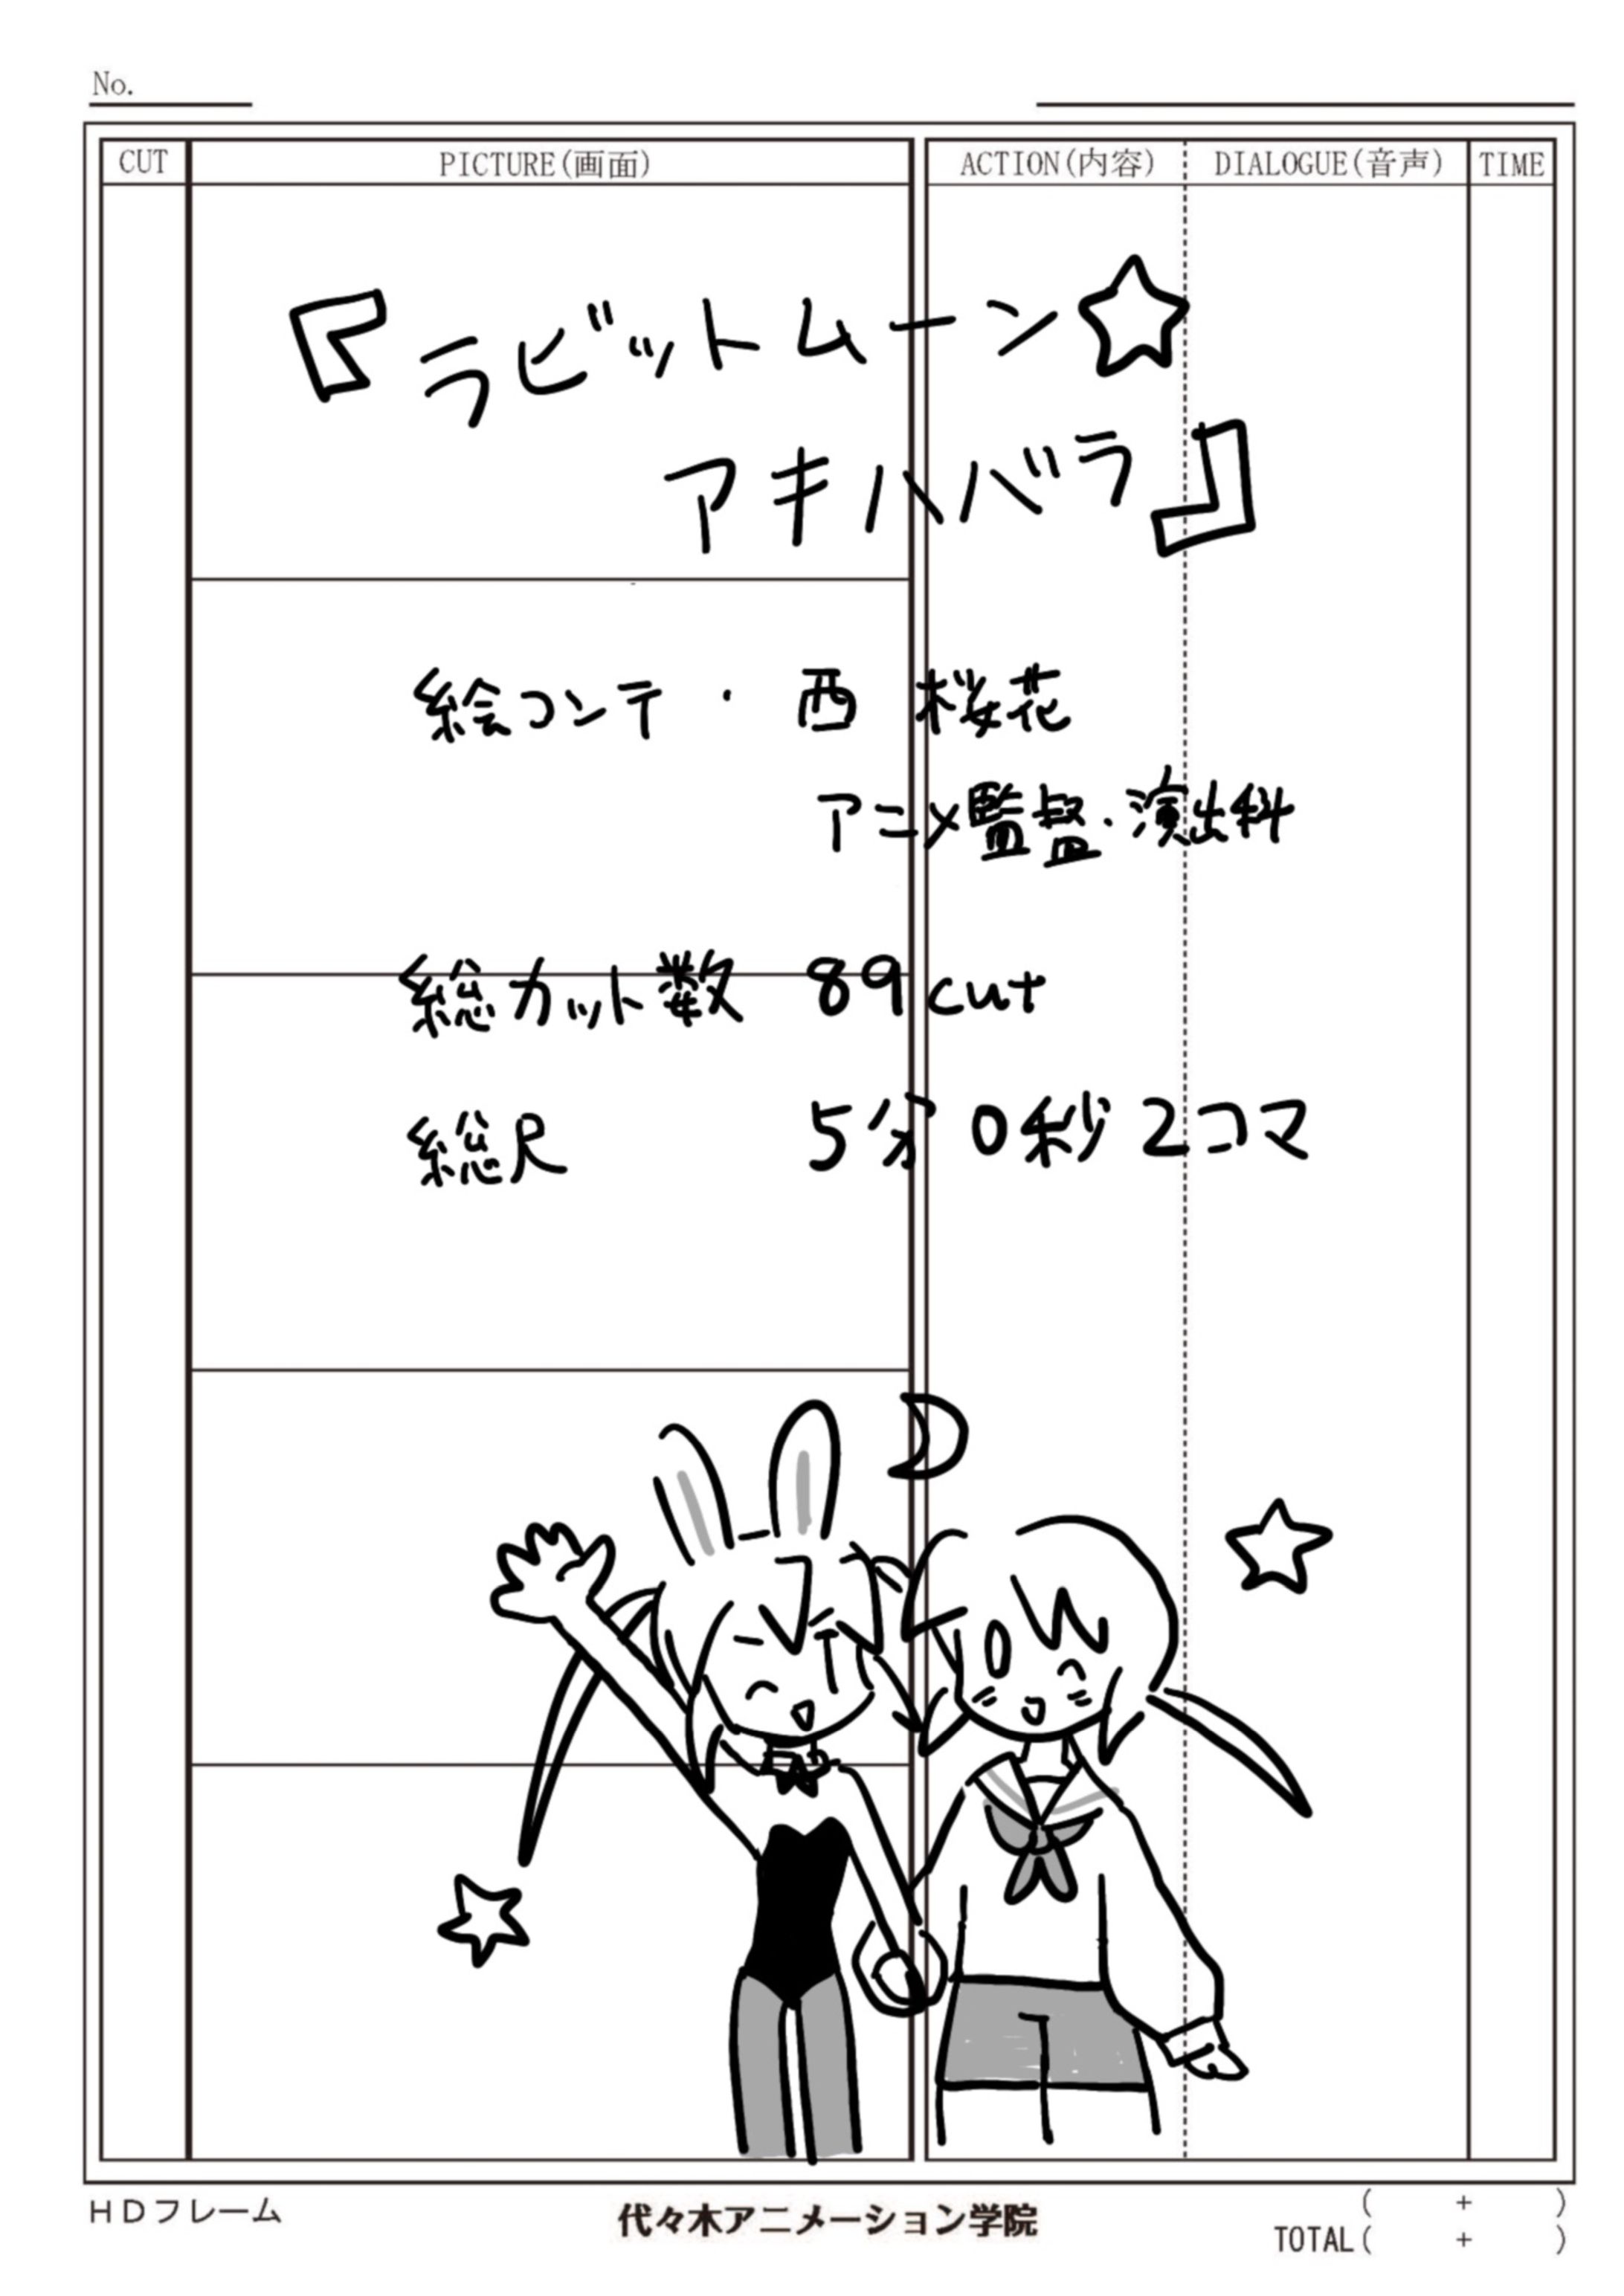 No.
CUT PICTURE(画面) ACTION(内容) DIALOGUE(音声) TIME
『ラビットムーン☆
アキハバラ』
絵コンテ・西 桜花
アニメ監督・演出科
総カット数 89cut
総尺 5分0秒2コマ
HDフレーム 代々木アニメーション学院 ( + )
TOTAL( + )